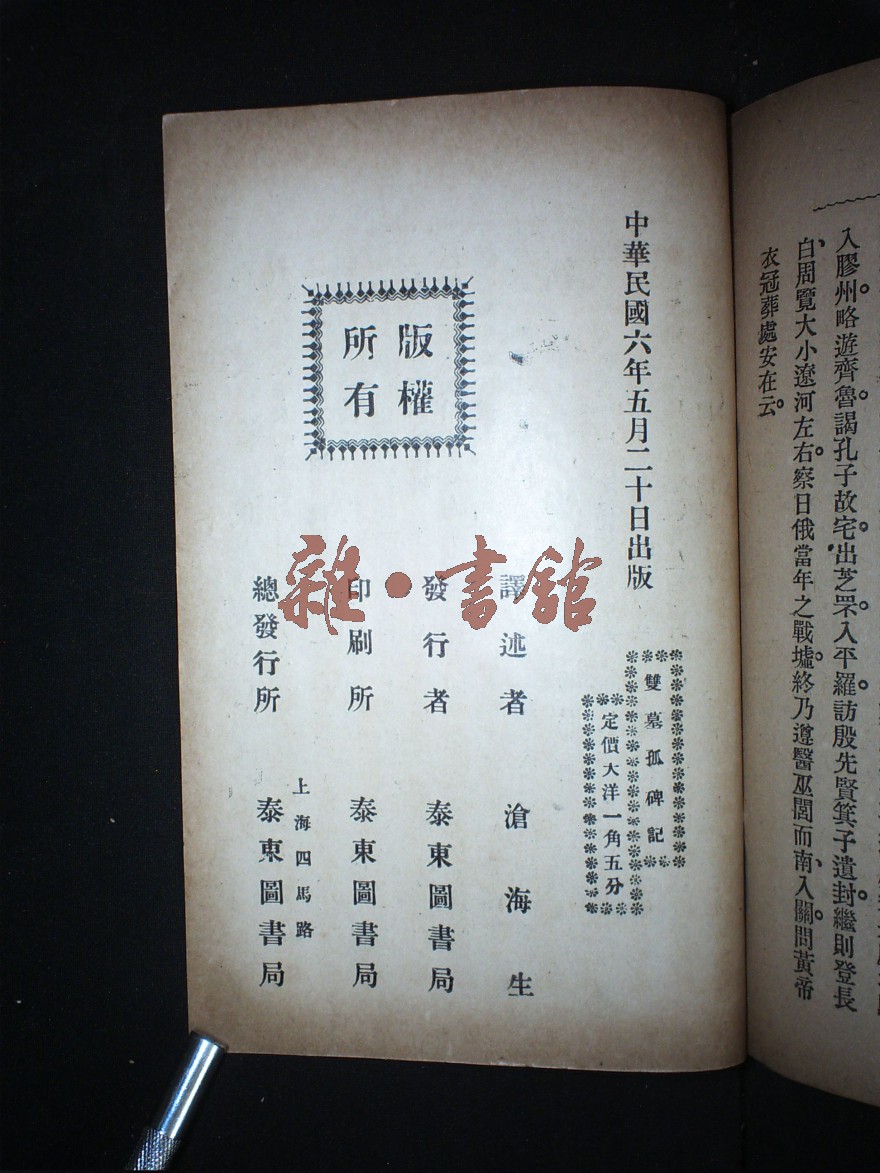 入膠州。略遊齊魯。謁孔子故宅。出芝罘。入平羅。訪殷先賢箕子遺封。繼則登長
白、周覽大小遼河左右。察日俄當年之戰墟。終乃遵醫巫閭而南、入關。問黃帝
衣冠葬處安在云。
中華民國六年五月二十日出版
雙墓孤碑記
定價大洋一角五分
版權
所有
譯述者 滄海生
發行者 泰東圖書局
印刷所 泰東圖書局
上海四馬路
總發行所 泰東圖書局
雜·書館